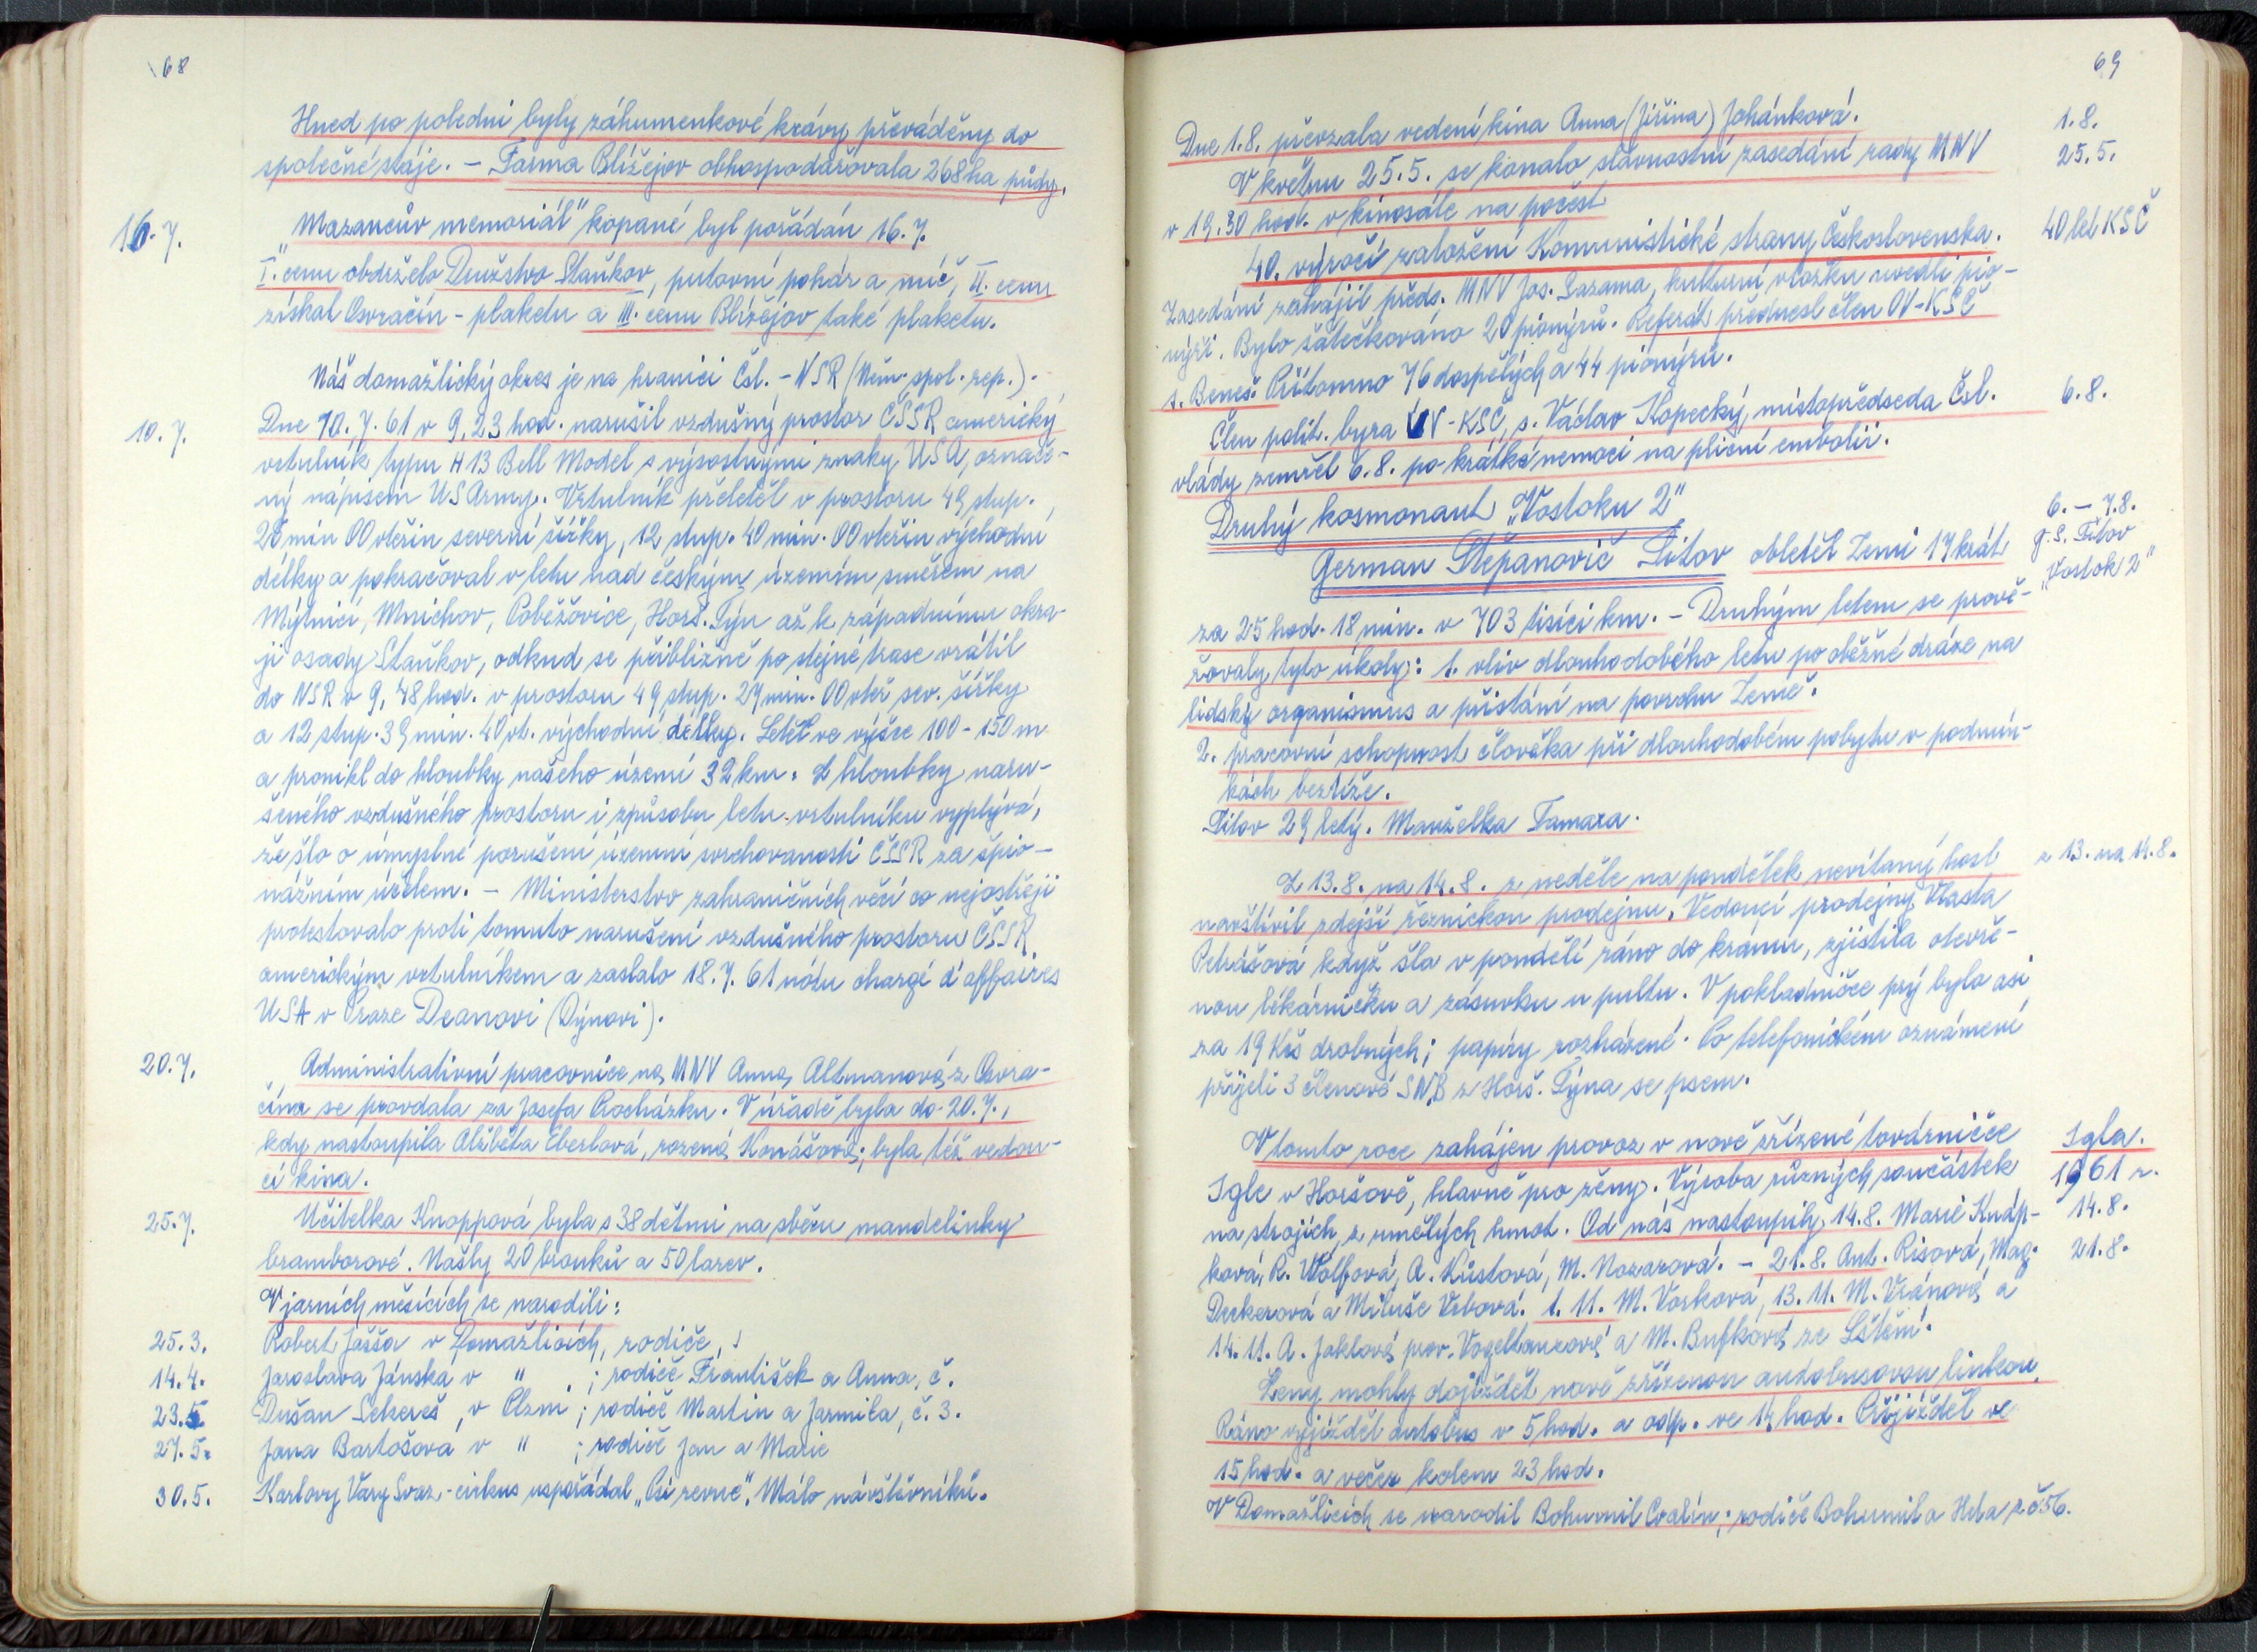 68
Hned po poledni byly záhumenkové krávy převáděny do
společné stáje. – Farma Blížejov obhospodařovala 268 ha půdy.
16. 7.
„Mazancův memoriál" kopané byl pořádán 16. 7.
I. cenu obdrželo Družstvo Staňkov, putovní pohár a míč, II. cenu
získal Osvračín - plaketu a III. cenu Blížejov také plaketu.
Náš domažlický okres je na hranici Čsl. - NSR (Něm. spol. rep.).
10. 7.
Dne 10. 7. 61 v 9,23 hod. narušil vzdušný prostor ČSSR americký
vrtulník typu H 13 Bell Model s výsostnými znaky USA, označe-
ný nápisem US Army. Vrtulník přeletěl v prostoru 49 stup.,
25 min 00 vteřin severní šířky, 12 stup. 40 min. 00 vteřin východní
délky a pokračoval v letu nad českým územím směrem na
Mýtnici, Mnichov, Poběžovice, Horš. Týn až k západnímu okra-
ji osady Staňkov, odkud se přibližně po stejné trase vrátil
do NSR v 9,48 hod. v prostoru 49 stup. 27 min. 00 vteř sev. šířky
a 12 stup. 39 min. 40 vt. východní délky. Letěl ve výšce 100 - 150 m
a pronikl do hloubky našeho území 32 km. Z hloubky naru-
šeného vzdušného prostoru i způsobu letu vrtulníku vyplývá,
že šlo o úmyslné porušení územní svrchovanosti ČSSR za špio-
nážním účelem. – Ministerstvo zahraničních věcí co nejostřeji
protestovalo proti tomuto narušení vzdušného prostoru ČSSR
americkým vrtulníkem a zaslalo 18. 7. 61 nótu chargé d'affaires
USA v Praze Deanovi (Dýnovi).
20. 7.
Administrativní pracovnice na MNV Anna Altmanová z Osvra-
čína se provdala za Josefa Procházku. V úřadě byla do 20. 7.,
kdy nastoupila Alžběta Eberlová, rozená Konášová; byla též vedou-
cí kina.
25. 7.
Učitelka Knoppová byla s 38 dětmi na sběru mandelinky
bramborové. Našly 20 brouků a 50 larev.
V jarních měsících se narodili:
25. 3. Robert Jašša v Domažlicích, rodiče,
14. 4. Jaroslava Jánska v " ; rodiče František a Anna, č.
23. 5. Dušan Sekereš, v Plzni ; rodiče Martin a Jarmila, č. 3.
27. 5. Jana Bartošová v " ; rodiče Jan a Marie
30. 5. Karlovy Vary Svaz - cirkus uspořádal „Psí revue". Málo návštěvníků.
69
Dne 1. 8. převzala vedení kina Anna (Jiřina) Johánková.
1. 8.
V květnu 25. 5. se konalo slavnostní zasedání rady MNV
25. 5.
v 19.30 hod. v kinosále na počest
40. výročí založení Komunistické strany Československa.
40 let KSČ
Zasedání zahájil předs. MNV Jos. Sazama, kulturní vložku uvedli pio-
nýři. Bylo šátečkováno 20 pionýrů. Referát přednesl člen OV-KSČ
s. Beneš. Přítomno 76 dospělých a 44 pionýrů.
Člen polit. byra ÚV-KSČ, s. Václav Kopecký, místopředseda Čsl.
6. 8.
vlády zemřel 6. 8. po krátké nemoci na plicní embolii.
Druhý kosmonaut „Vostoku 2"
6. – 7. 8.
German Štěpanovič Titov obletěl Zemi 17 krát
G. S. Titov
„Vostok 2"
za 25 hod. 18 min. v 703 tisíci km. – Druhým letem se prově-
řovaly tyto úkoly: 1. vliv dlouhodobého letu po oběžné dráze na
lidský organismus a přistání na povrchu Země.
2. pracovní schopnost člověka při dlouhodobém pobytu v podmín-
kách beztíže.
Titov 29 letý. Manželka Tamara.
Z 13. 8. na 14. 8. z neděle na pondělek nevítaný host
z 13. na 14. 8.
navštívil zdejší řeznickou prodejnu. Vedoucí prodejny Vlasta
Petrášová když šla v pondělí ráno do krámu, zjistila otevře-
nou lékárničku a zásuvku u pultu. V pokladničce prý bylo asi
za 19 Kčs drobných; papíry rozházené. Po telefonickém oznámení
přijeli 3 členové SNB z Horš. Týna se psem.
V tomto roce zahájen provoz v nově zřízené továrničce
Igla.
Igle v Horšově, hlavně pro ženy. Výroba různých součástek
1961 r.
na strojích, z umělých hmot. Od nás nastoupily 14. 8. Marie Knáp-
14. 8.
ková, R. Wolfová, A. Küstová, M. Nozarová. – 21. 8. Ant. Risová, Mag.
21. 8.
Deckerová a Miluše Vrbová. 1. 11. M. Vorková, 13. 11. M. Vránová a
14. 11. A. Joklová, prov. Vogeltanzová a M. Bufková ze Lštění.
Ženy mohly dojíždět nově zřízenou autobusovou linkou.
Ráno vyjížděl autobus v 5 hod. a odp. ve 14 hod. Přijížděl ve
15 hod. a večer kolem 23 hod.
V Domažlicích se narodil Bohumil Cvalín; rodiče Bohumil a Hela z č. 56.